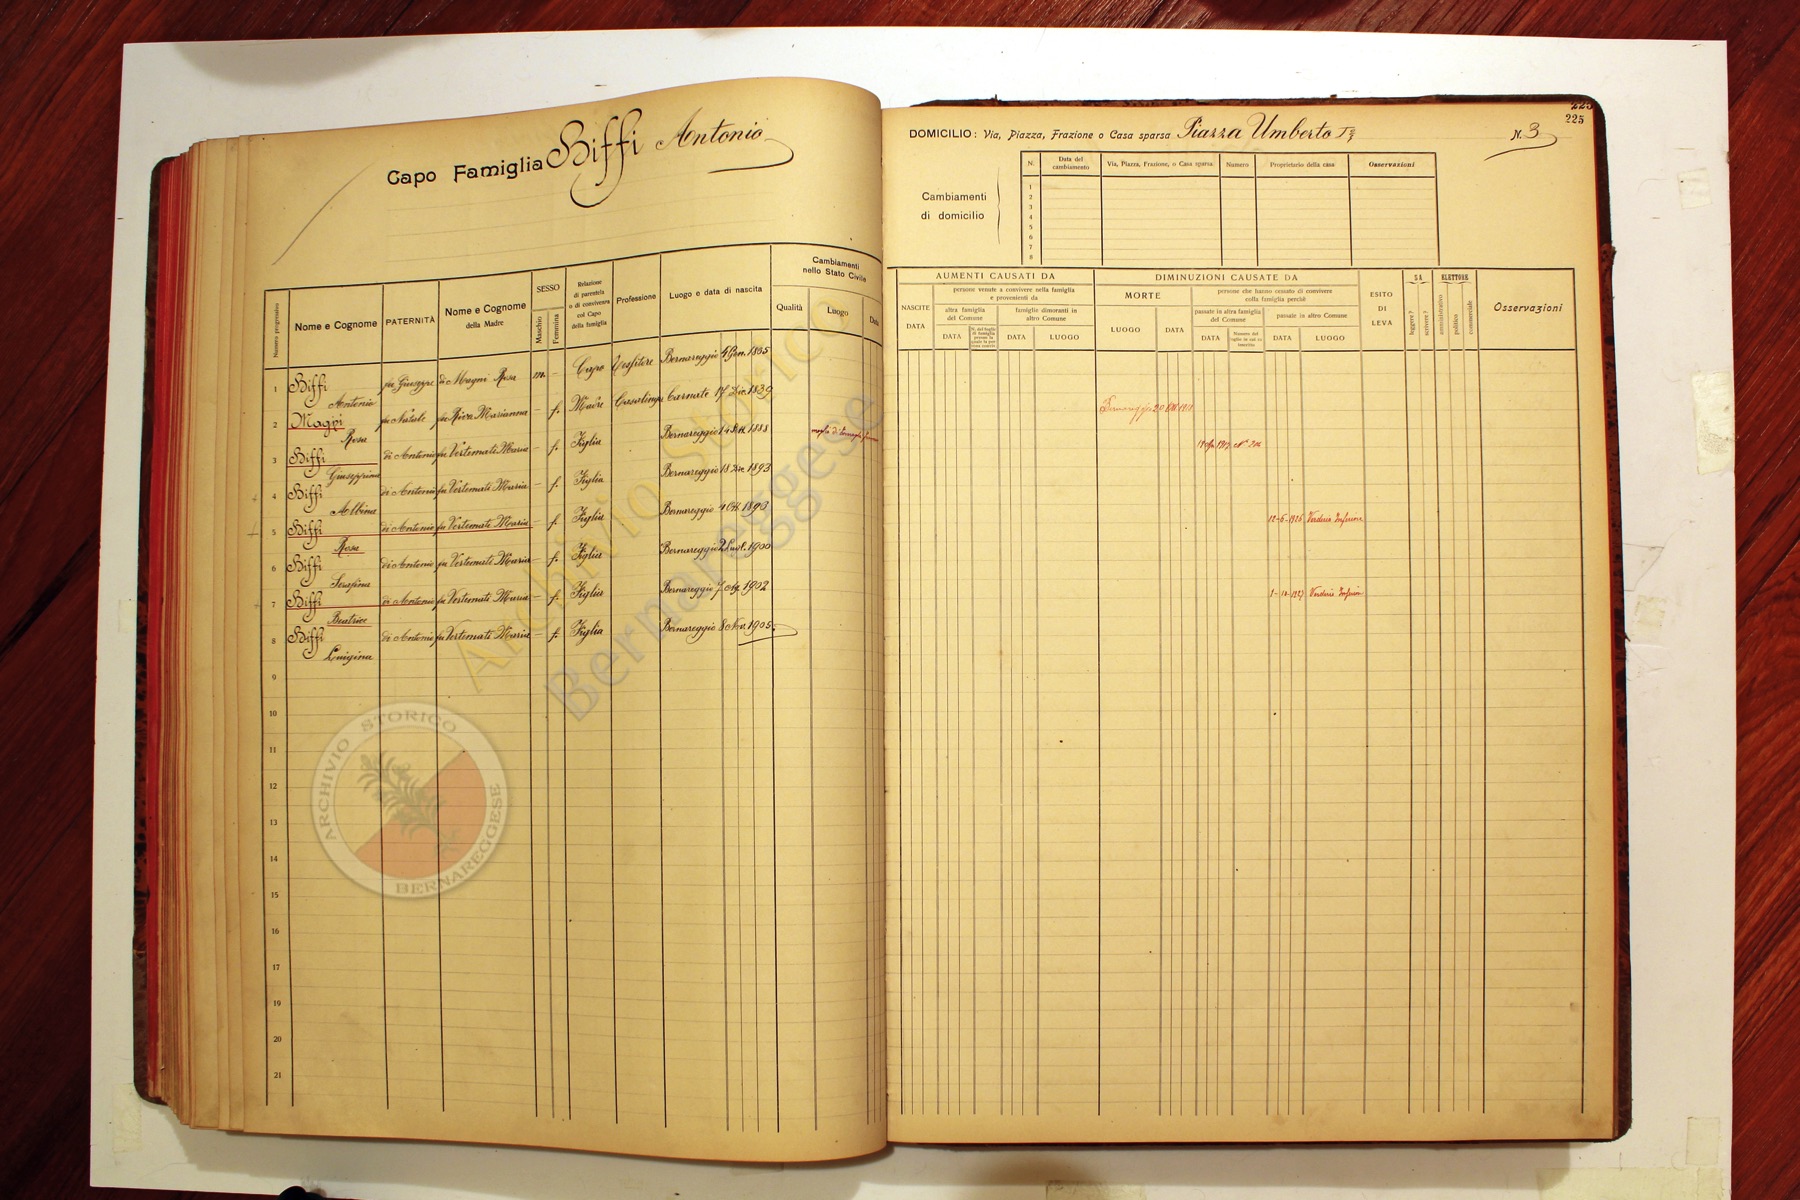 Capo Famiglia Biffi Antonio
Numero progressivo
Nome e Cognome
PATERNITÀ
Nome e Cognome della Madre
SESSO
Maschio
Femmina
Relazione di parentela o di convivenza col Capo della famiglia
Professione
Luogo e data di nascita
Cambiamenti nello Stato Civile
Qualità
Luogo
Data
1 Biffi Antonio fu Giuseppe di Magni Rosa m. - Capo Bernareggio 4 Gen. 1865
2 Rosa fu Natale fu Riva Marianna - f. Madre Casalinga Carnate 17 Dic. 1839
3 Biffi Giuseppina di Antonio fu Vertemati Maria - f. Figlia Bernareggio 1888
4 Biffi Albina di Antonio fu Vertemati Maria - f. Figlia Bernareggio 18 Dic. 1893
5 Biffi Rosa di Antonio fu Vertemati Maria - f. Figlia Bernareggio
6 Biffi Serafina di Antonio fu Vertemati Maria - f. Figlia Bernareggio 2 Lugl. 1900
7 Biffi Beatrice di Antonio fu Vertemati Maria - f. Figlia Bernareggio 7 1902
8 Biffi Luigina di Antonio fu Vertemati Maria - f. Figlia Bernareggio 8 Nov. 1905
9
10
11
12
13
14
15
16
17
18
19
20
21
225
DOMICILIO: Via, Piazza, Frazione o Casa sparsa Piazza Umberto I N. 3
Cambiamenti di domicilio
N.
Data del cambiamento
Via, Piazza, Frazione, o Casa sparsa
Numero
Proprietario della casa
Osservazioni
1
2
3
4
5
6
7
8
AUMENTI CAUSATI DA
NASCITE
DATA
persone venute a convivere nella famiglia e provenienti da
altra famiglia del Comune
DATA
famiglie dimoranti in altro Comune
DATA
LUOGO
DIMINUZIONI CAUSATE DA
MORTE
LUOGO
DATA
persone che hanno cessato di convivere colla famiglia perchè
passate in altra famiglia del Comune
DATA
passate in altro Comune
DATA
LUOGO
ESITO DI LEVA
SA
leggere?
scrivere?
ELETTORE
amministrativo
politico
commerciale
Osservazioni
12-6-1926 Verderio Inferiore
1-10-1927 Verderio Inferior
ARCHIVIO STORICO BERNAREGGESE
Archivio Storico
Bernareggese